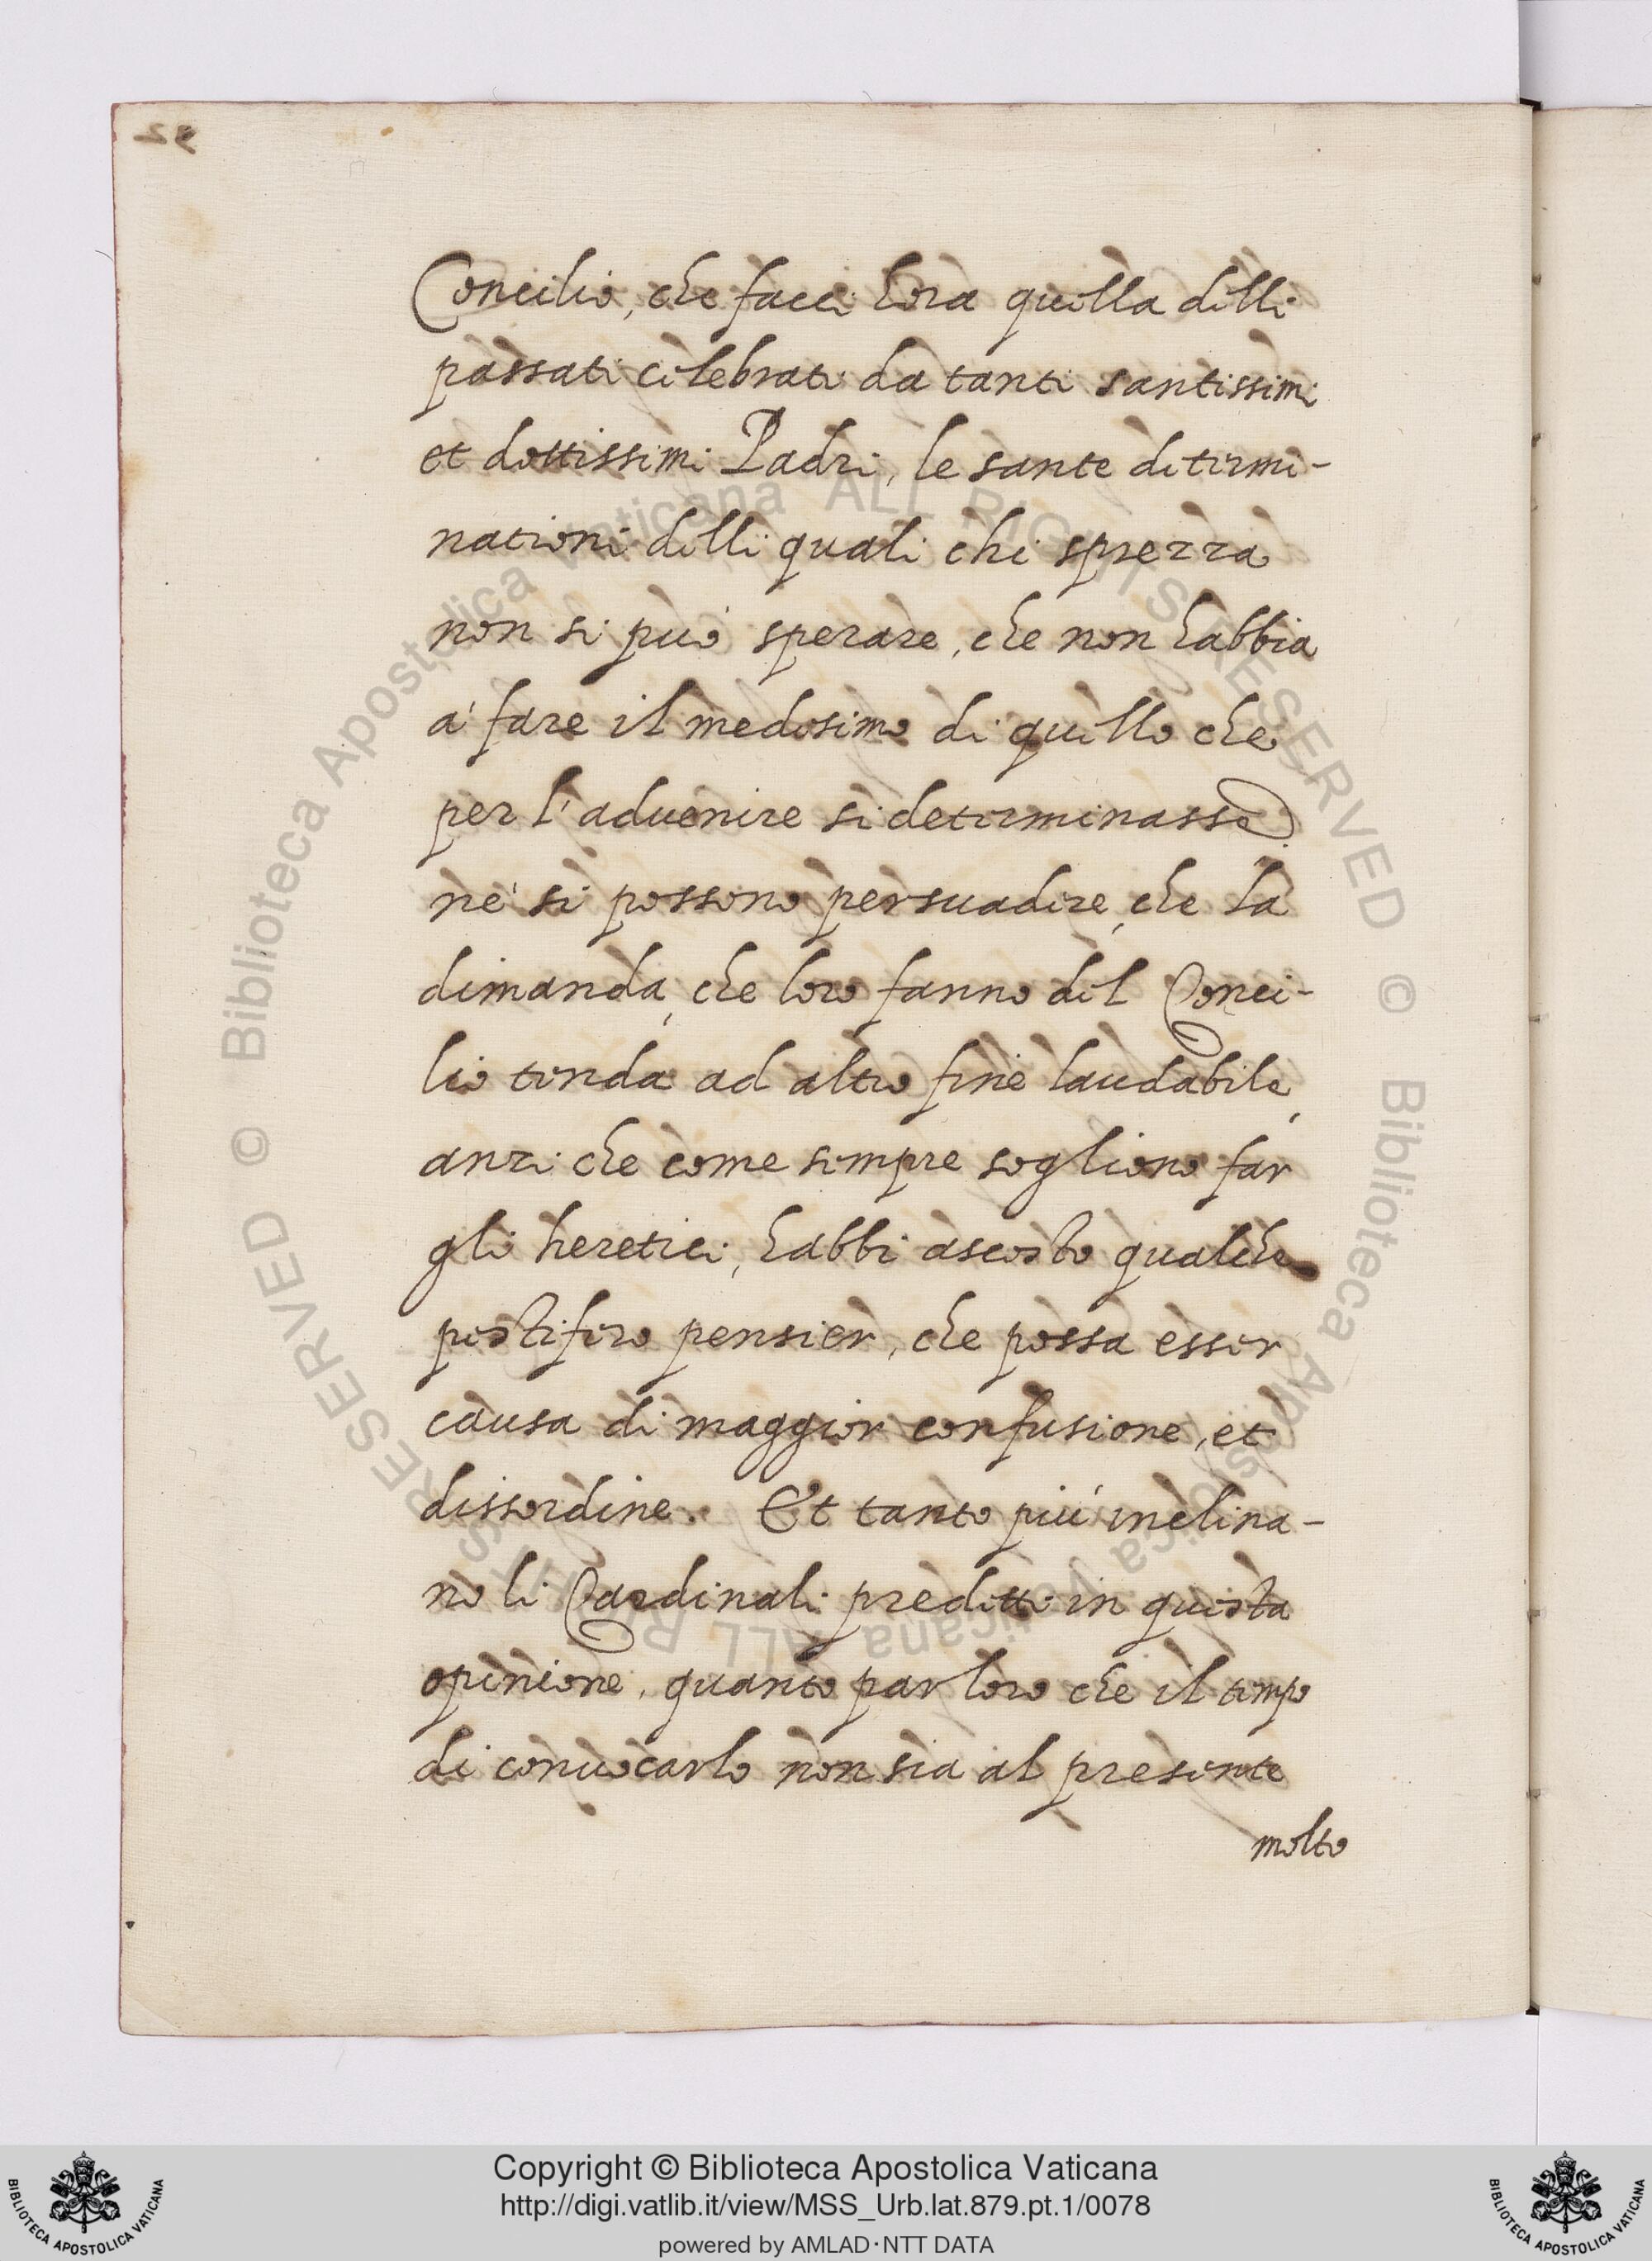 Concilio, che facci hora quella delli
passati celebrati da tanti santissimi
et dottissimi Padri, le sante determi-
nationi delli quali chi sprezza
non si può sperare, che non habbia
a' fare il medesimo di quello che
per l'advenire si determinasse,
nè si possono persuadere, che la
dimanda, che loro fanno del Conci-
lio tenda ad altro fine laudabile,
anzi che come sempre sogliono far
gli heretici, habbi ascosto qualche
pestifero pensier, che possa esser
causa di maggior confusione, et
dissordine. Et tanto più inclina-
no li Cardinali preditti in questa
opinione, quanto par loro che il tempo
di convocarlo non sia al presente
molto
© Biblioteca Apostolica Vaticana ALL RIGHTS RESERVED
© Biblioteca Apostolica Vaticana ALL RIGHTS RESERVED
Copyright © Biblioteca Apostolica Vaticana
http://digi.vatlib.it/view/MSS_Urb.lat.879.pt.1/0078
powered by AMLAD·NTT DATA
BIBLIOTECA APOSTOLICA VATICANA
BIBLIOTECA APOSTOLICA VATICANA